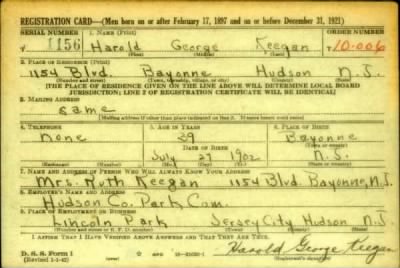 REGISTRATION CARD—(Men born on or after February 17, 1897 and on or before December 31, 1921)
SERIAL NUMBER 1. NAME (Print) ORDER NUMBER
1156 Harold George Keegan 10-006
(First) (Middle) (Last)
2. PLACE OF RESIDENCE (Print)
1154 Blvd. Bayonne Hudson N.J.
(Number and street) (Town, township, village, or city) (County) (State)
[THE PLACE OF RESIDENCE GIVEN ON THE LINE ABOVE WILL DETERMINE LOCAL BOARD
JURISDICTION; LINE 2 OF REGISTRATION CERTIFICATE WILL BE IDENTICAL]
3. MAILING ADDRESS
same
[Mailing address if other than place indicated on line 2. If same insert word same]
4. TELEPHONE 5. AGE IN YEARS 6. PLACE OF BIRTH
none 39 Bayonne
DATE OF BIRTH
July 27 1902 N.J.
7. NAME AND ADDRESS OF PERSON WHO WILL ALWAYS KNOW YOUR ADDRESS
Mrs. Ruth Keegan 1154 Blvd. Bayonne, N.J.
8. EMPLOYER'S NAME AND ADDRESS
Hudson Co. Park Com.
9. PLACE OF EMPLOYMENT OR BUSINESS
Lincoln Park Jersey City Hudson N.J.
(Number and street or R. F. D. number) (Town) (County) (State)
I AFFIRM THAT I HAVE VERIFIED ABOVE ANSWERS AND THAT THEY ARE TRUE.
D. S. S. Form 1 Harold George Keegan
(Revised 1-1-42) (Registrant's signature)